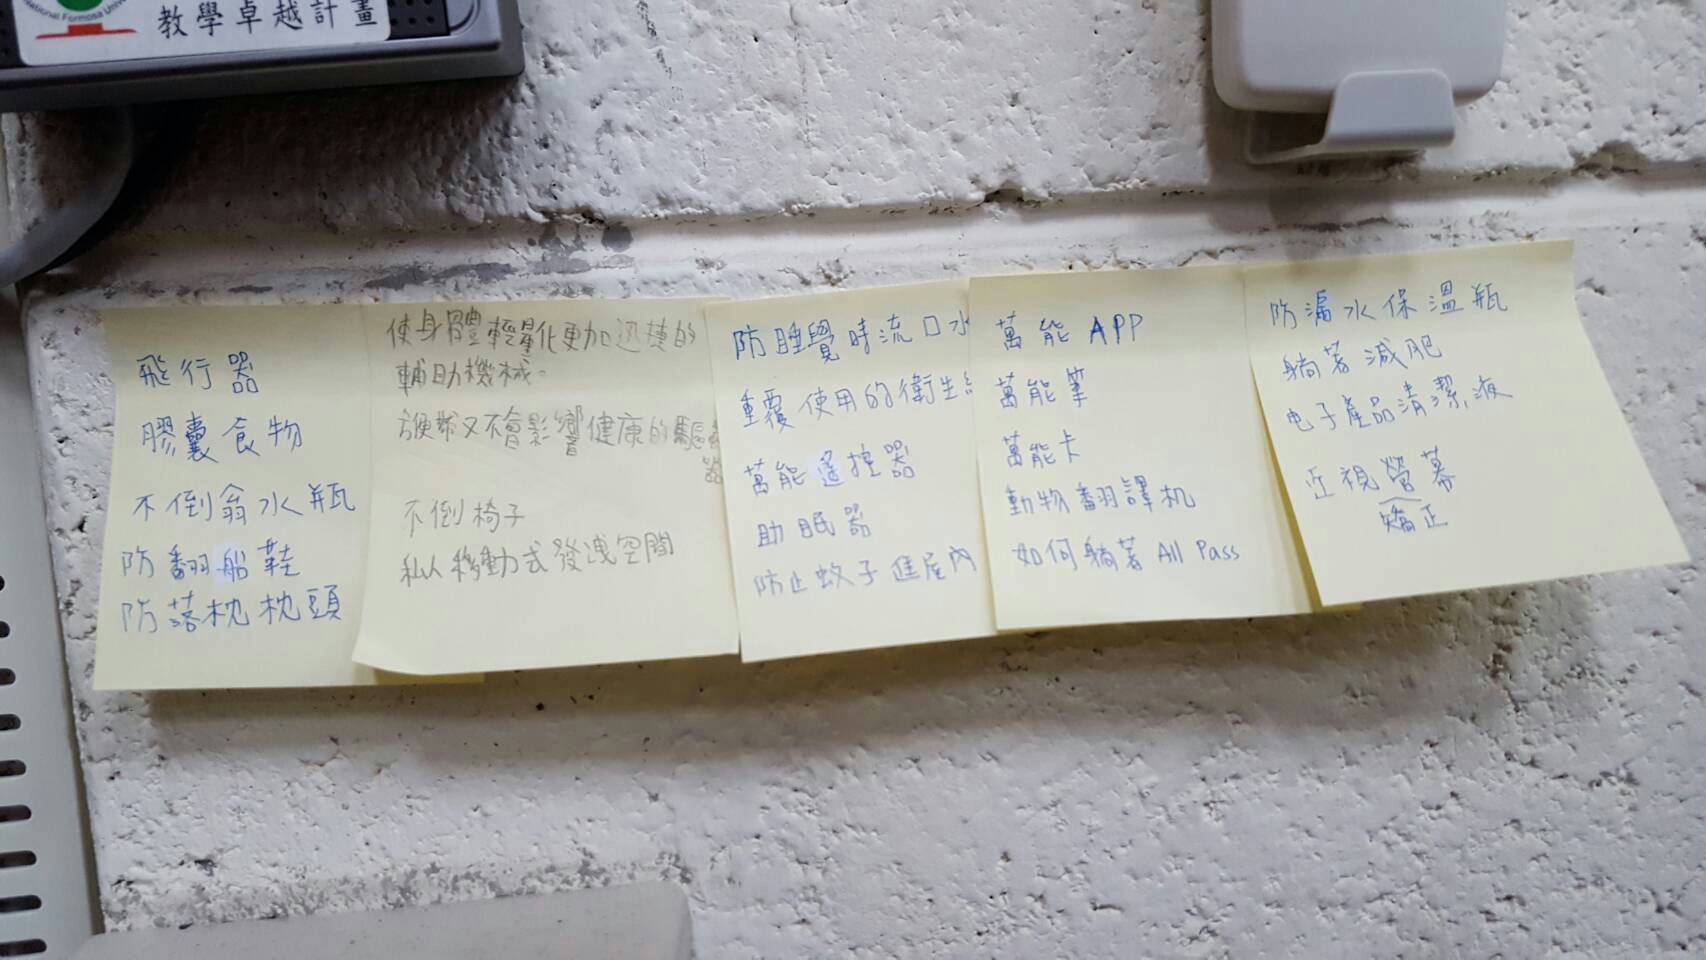 National Formosa Univ
教學卓越計畫
飛行器
膠囊食物
不倒翁水瓶
防翻船鞋
防落枕枕頭
使身體輕量化更加迅捷的
輔助機械。
方便幫又不會影響健康的驅
器
不倒椅子
私人移動式發洩空間
防睡覺時流口水
重覆使用的衛生
萬能遙控器
助眠器
防止蚊子進屋內
萬能APP
萬能筆
萬能卡
動物翻譯机
如何躺著 All Pass
防漏水保溫瓶
躺著減肥
电子產品清潔液
近視螢幕
矯正